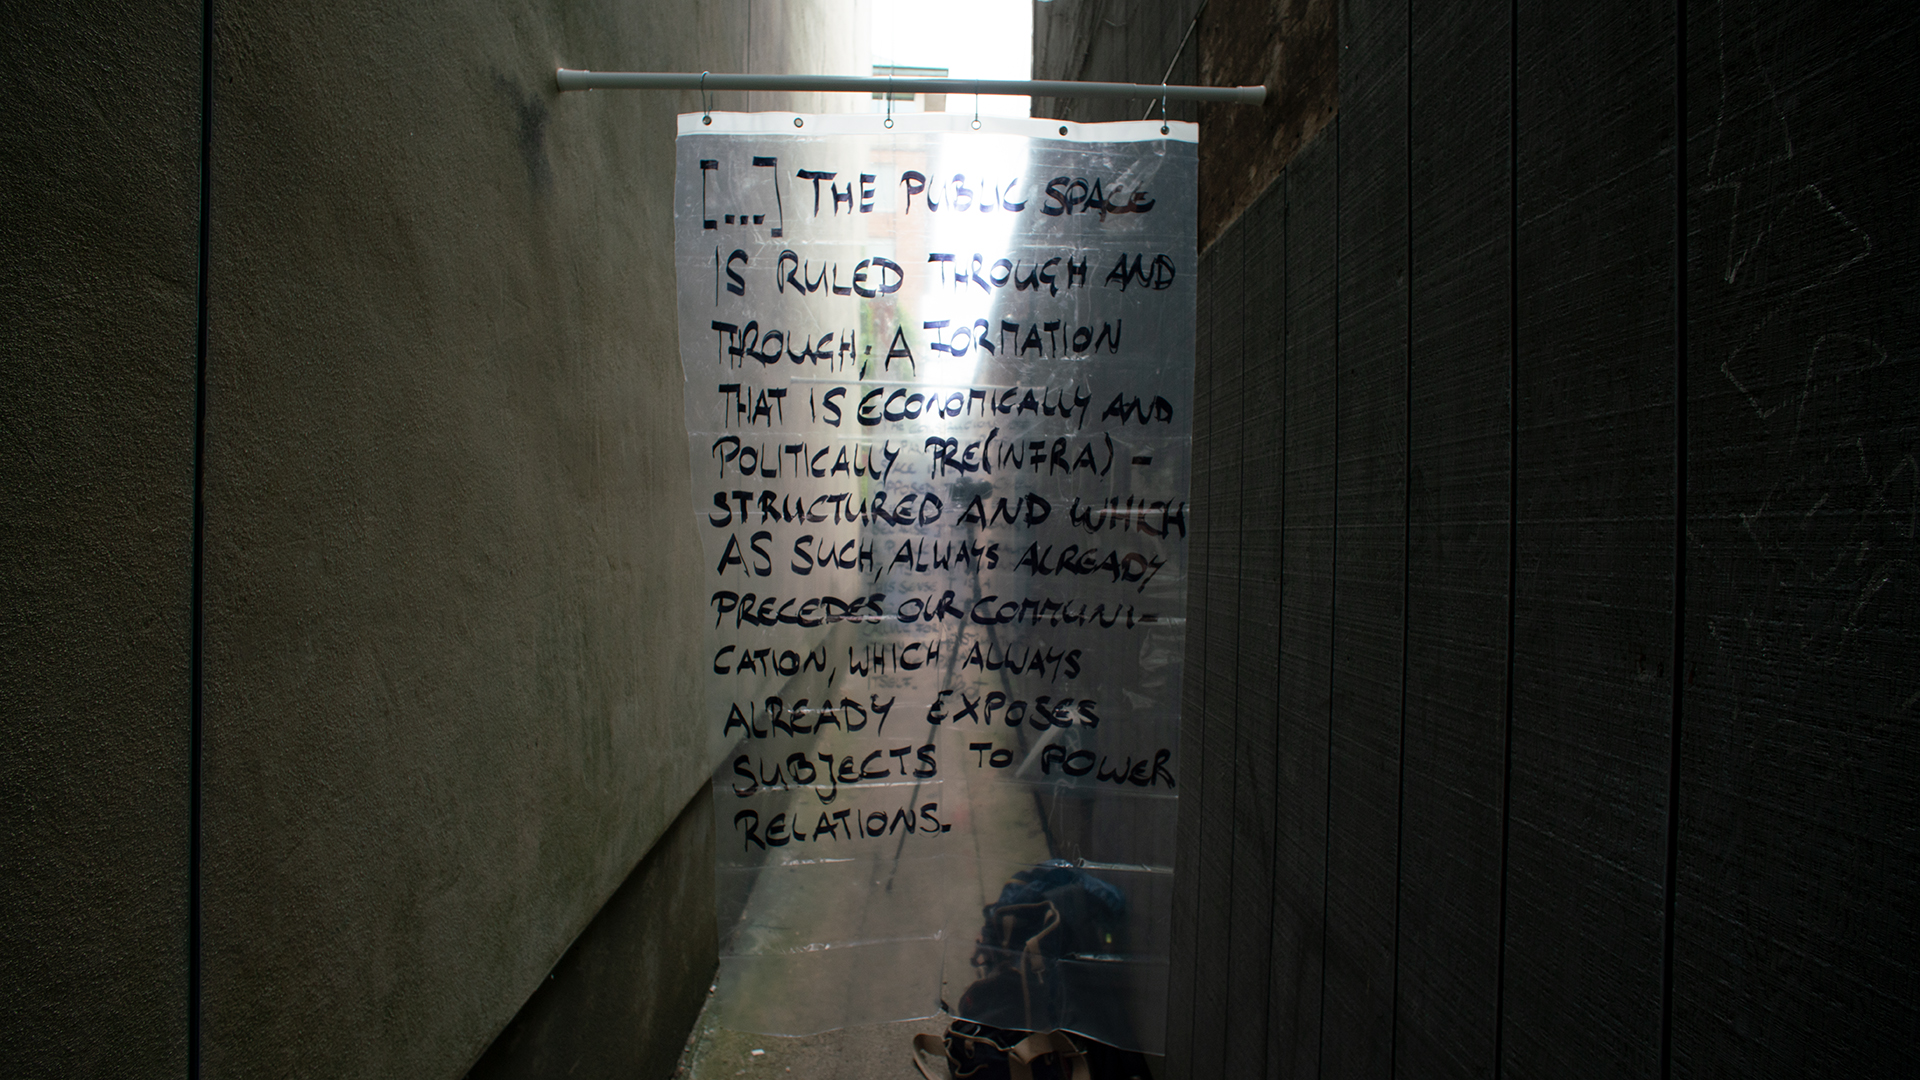 [...] THE PUBLIC SPACE
IS RULED THROUGH AND
THROUGH; A FORMATION
THAT IS ECONOMICALLY AND
POLITICALLY PRE(INFRA)-
STRUCTURED AND WHICH
AS SUCH, ALWAYS ALREADY
PRECEDES OUR COMMUNI-
CATION, WHICH ALWAYS
ALREADY EXPOSES
SUBJECTS TO POWER
RELATIONS.